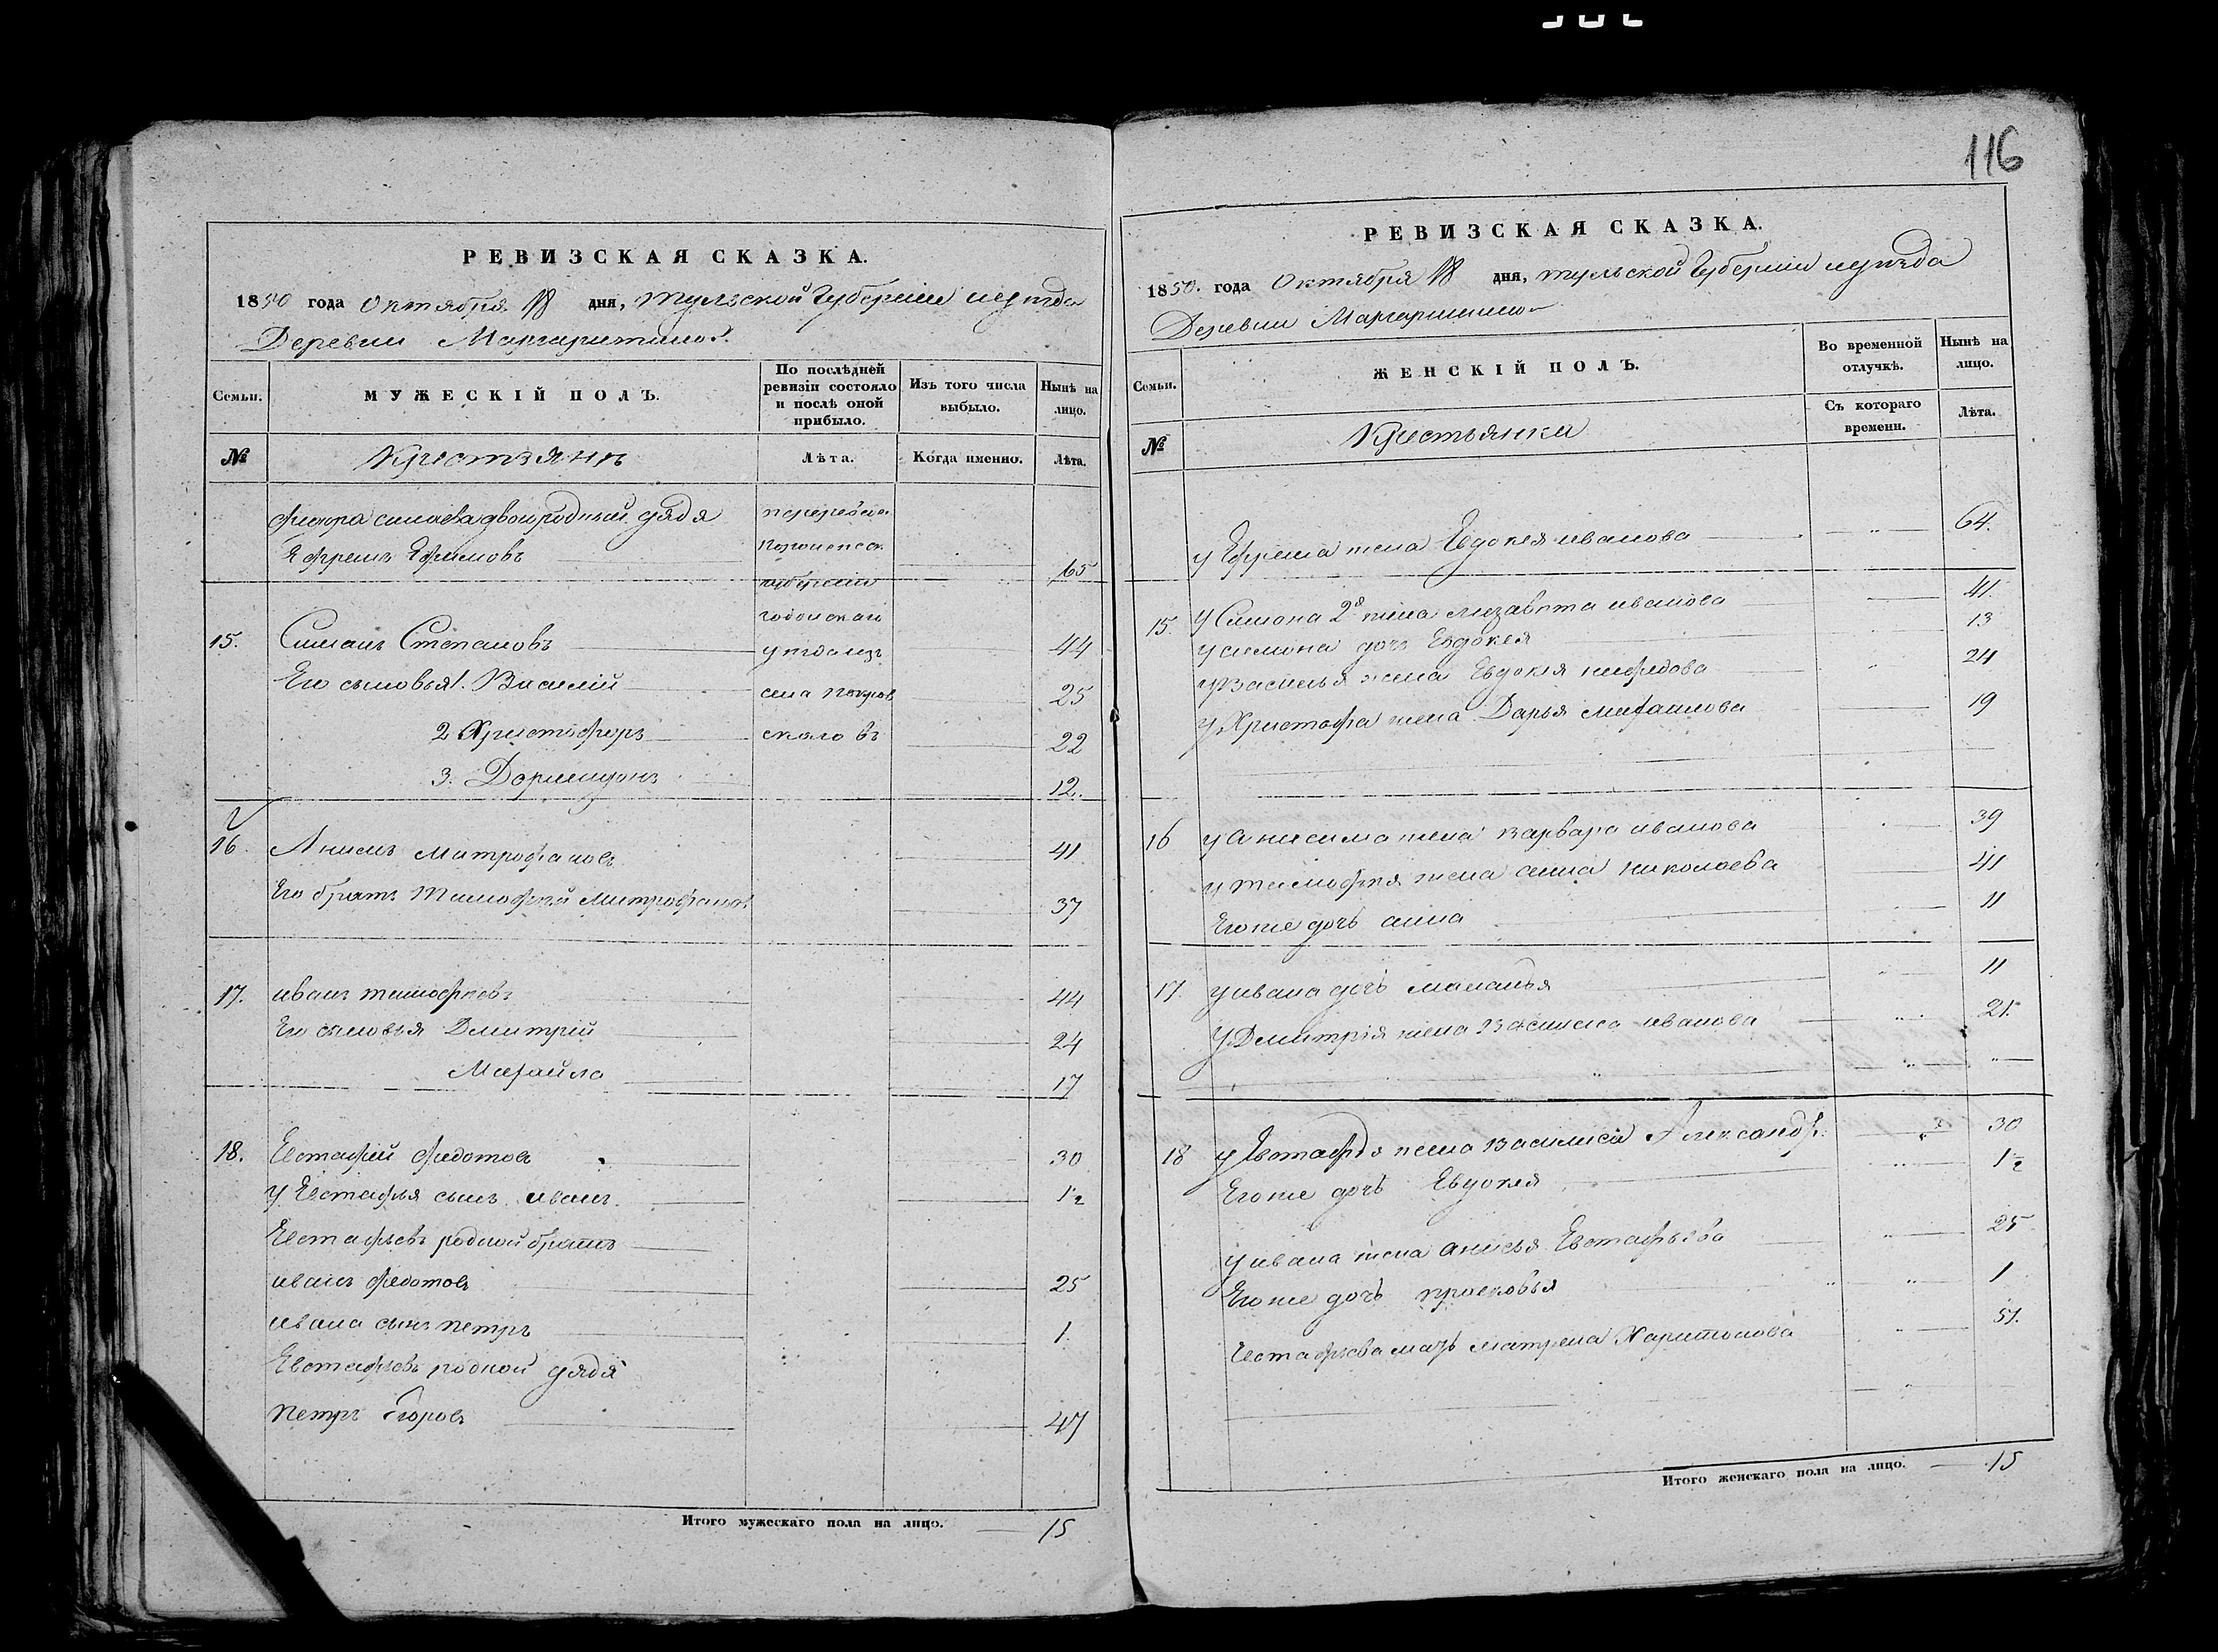 116
РЕВИЗСКАЯ СКАЗКА.
1850 года Октября 18 дня, тульской Губерніи иуезда
Деревни Маргаритино
Семьи.
МУЖЕСКІЙ ПОЛЪ.
По послѣдней ревизіи состояло и послѣ оной прибыло.
Изъ того числа выбыло.
Нынѣ на лицо.
№
Крестьянъ
Лѣта.
Когда именно.
Лѣта.
двоюродный дядя
Ефремъ Ефимовъ 65
губерніи
уѣзда изъ
села
15. Симонъ Степановъ 44
Его сыновья 1. Василій 25
2 Христофоръ 22
3. Дормидонъ 12.
16. Анисимъ Митрофановъ 41
Его братъ Тимофей Митрофановъ 37
17. иванъ тимофеевъ 44
Его сыновья Дмитрій 24
Михайла 17
18. Евстафей Федотовъ 30
У Евстафья сынъ иванъ 1/2
Евстафьевъ родной братъ
иванъ Федотовъ 25
ивана сынъ петръ 1.
Евстафьевъ родной дядя
петръ Егоровъ 47
Итого мужескаго пола на лицо. 15
РЕВИЗСКАЯ СКАЗКА.
1850. года Октября 18 дня, тульской Губерніи иуезда
Деревни Маргаритино
Семьи.
ЖЕНСКІЙ ПОЛЪ.
Во временной отлучкѣ.
Нынѣ на лицо.
Съ котораго времени.
Лѣта.
№
Крестьянки
у Ефрема жена Евдокея иванова 64.
15. у Симона 2я жена лизавета иванова 41.
у симона дочь Евдокея 13
у Василья жена Евдокея 24
у Христофа жена Дарья михайлова 19
16 у Анисима жена варвара иванова 39
у тимофея жена анна николаева 41
Егоже дочь анна 11
17. у ивана дочь маланья 11
У Дмитрія жена Василиса иванова 21.
18 у Евстафья жена василиса Александр. 30
Егоже дочь Евдокея 1 1/2
у ивана жена анисья Евстафьева 25
Егоже дочь прасковья 1
Евстафьева мать матрена Харитонова 51.
Итого женскаго пола на лицо. 15